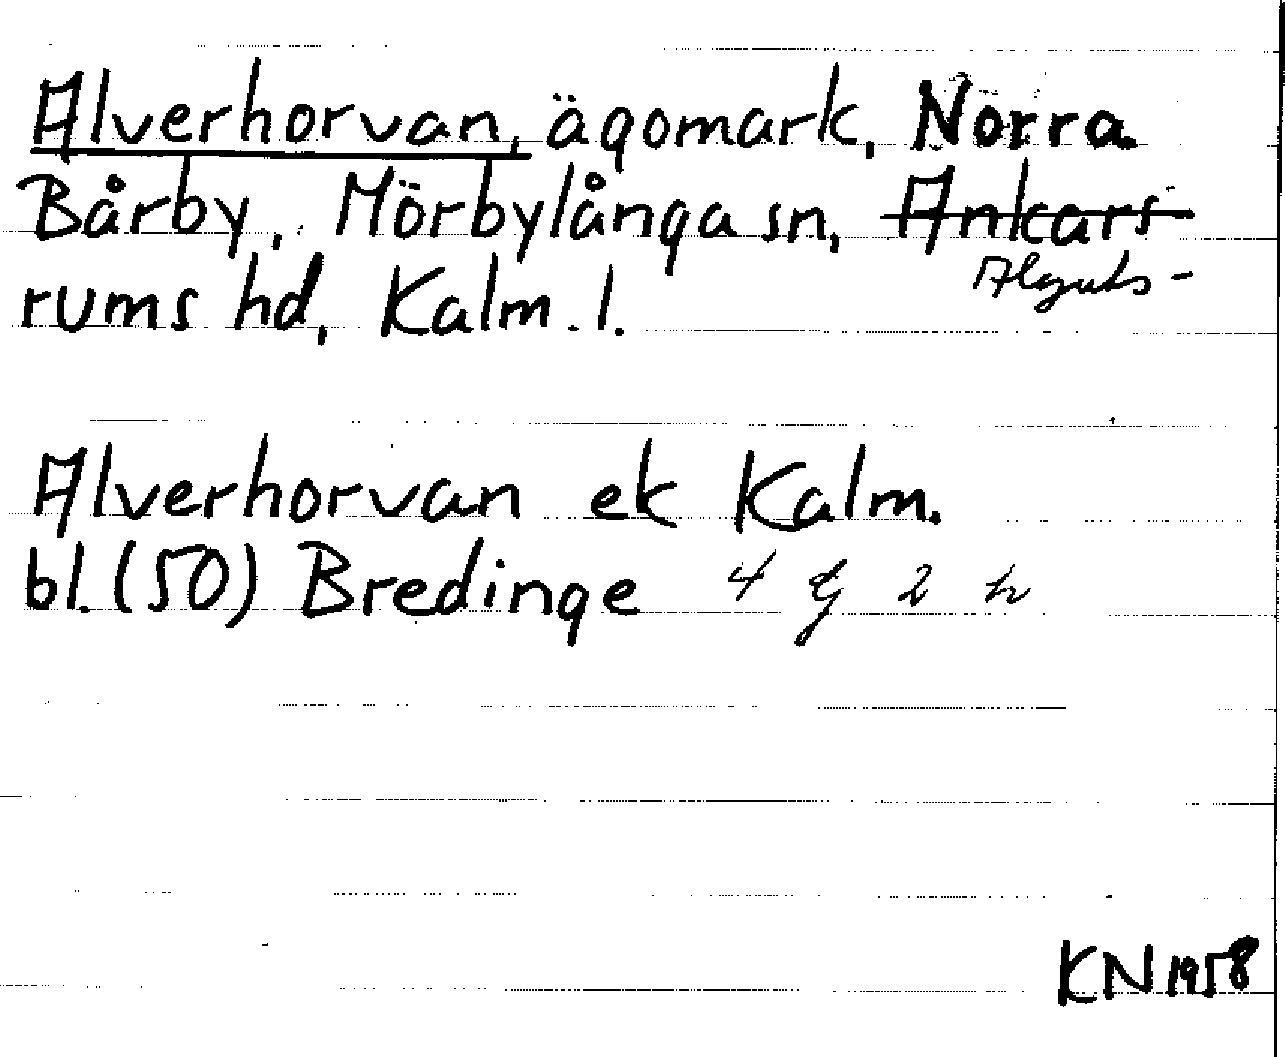 Alverhorvan, ägomark, Norra
Bårby, Mörbylånga sn, Ankars-
Alguts-
rums hd, Kalm. l.
Alverhorvan ek Kalm.
bl. (50) Bredinge 4 g 2 h
KN 1958